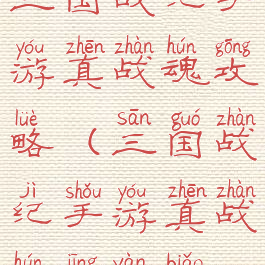 yóu zhēn zhàn hún gōng
游真战魂攻
lüè sān guó zhàn
略(三国战
jì shǒu yóu zhēn zhàn
纪手游真战
hún jīng yàn biǎo